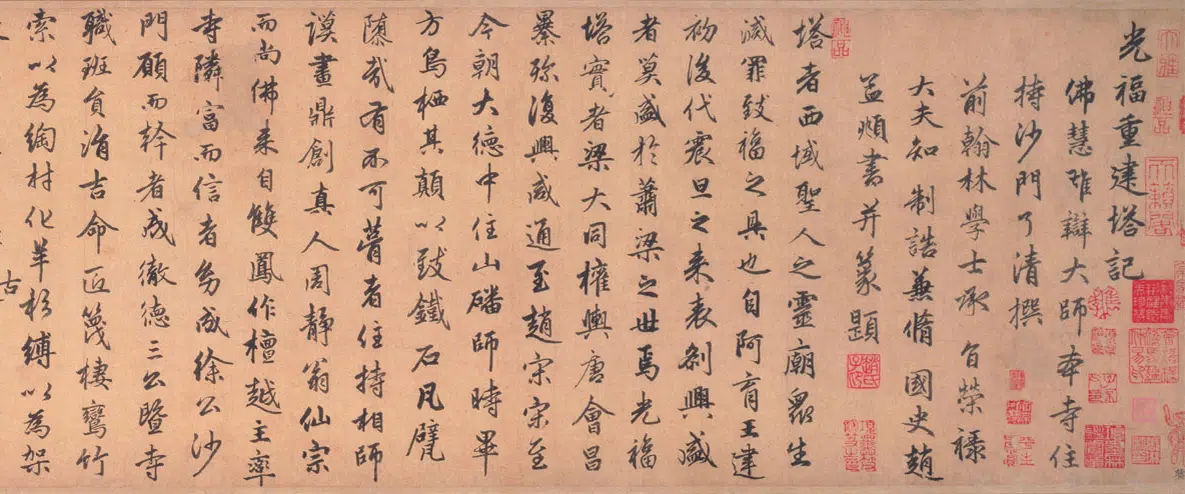 光福重建塔記
佛慧雄辯大師本寺住
持沙門了清撰
前翰林學士承旨榮祿
大夫知制誥兼脩國史趙
孟頫書并篆題
塔者西域聖人之靈廟眾生
滅罪致福之具也自阿育王建
初後代震旦之来表剎興盛
者莫盛於蕭梁之世焉光福
塔實者梁大同權輿唐會昌
纂弥復興咸通至趙宋宋至
今朝大德中住山磻師時畢
方鳥栖其顛以致鐵石凡甓
隳哉有不可瞢者住持相師
謨畫鼎創真人周靜翁仙宗
而尚佛来自雙鳳作檀越主率
寺隣富而信者劵成徐公沙
門願而幹者成徹德三公曁寺
職班負涓吉命匠筏棲鸞竹
索以為綯村化羊杉縛以為架
古